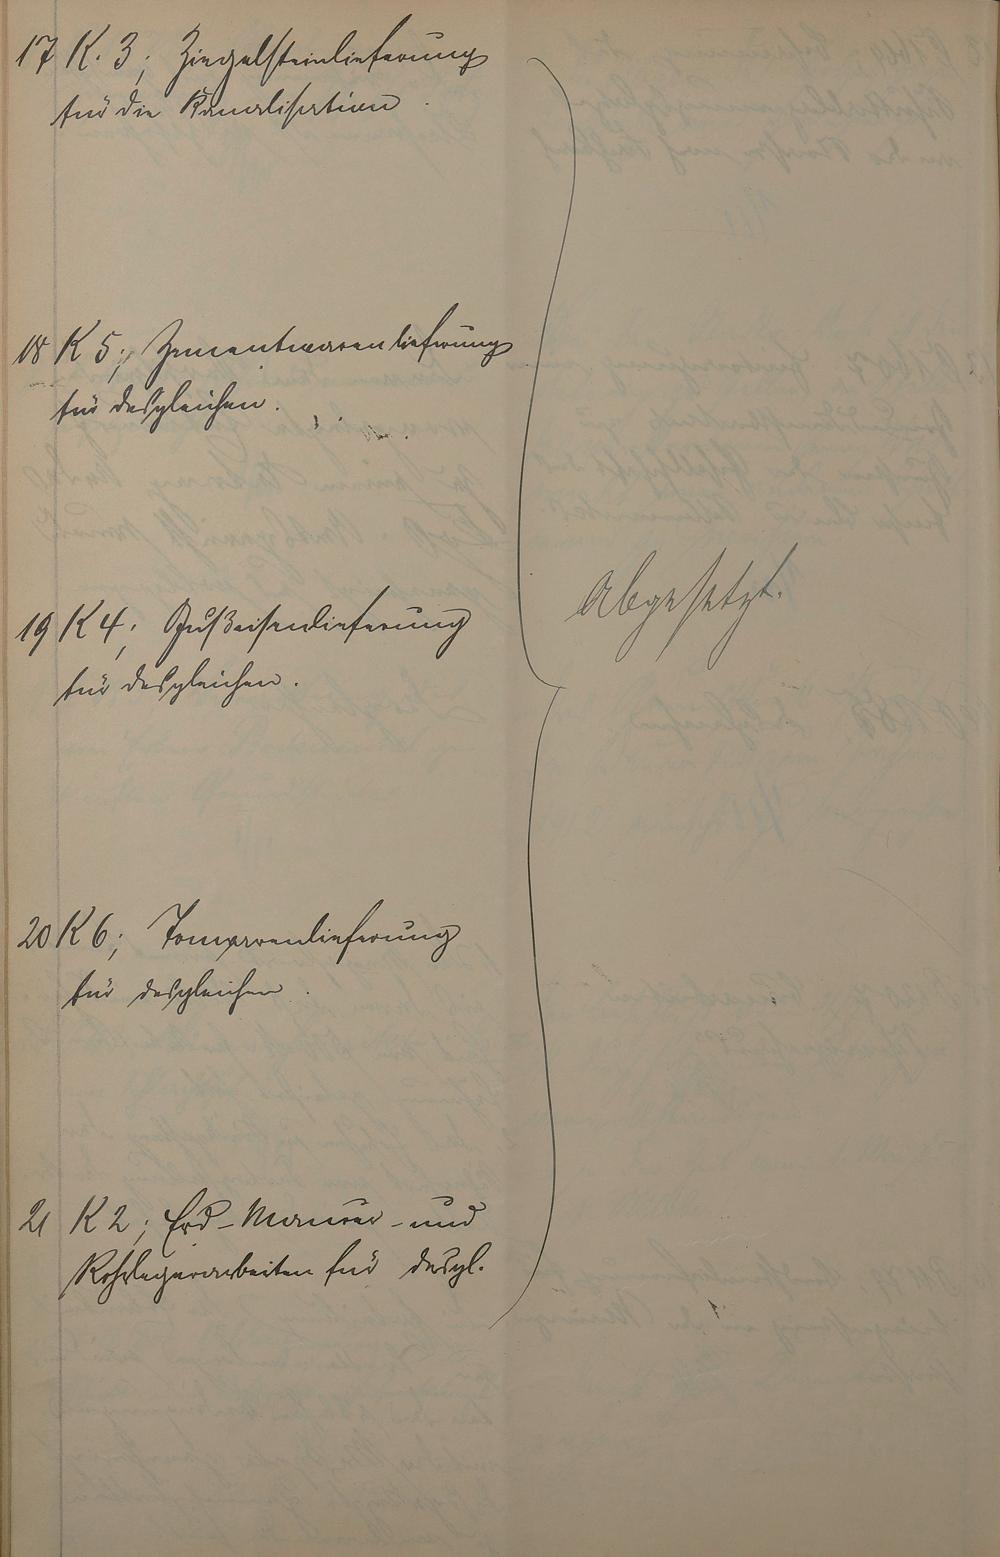 17 K. 3; Ziegelsteinlieferung
für die Kanalisation.
18 K 5; Zementwarenlieferung
für desgleichen.
19 K 4; Gußeisenlieferung
für desgleichen.
Abgesetzt.
20 K 6; Tonwarenlieferung
für desgleichen.
21 K 2; Erd- Maurer- und
Rohrlegerarbeiten für desgl.